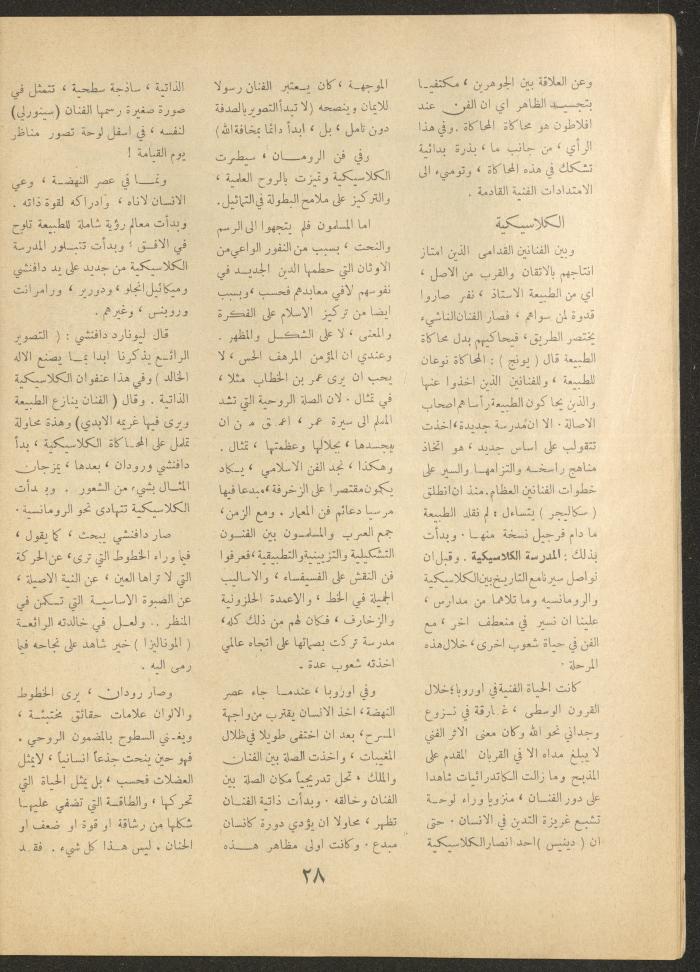 وعن العلاقة بين الجوهرين ، مكتفيا
بتجسيد الظاهر اي ان الفن عند
افلاطون هو محاكاة المحاكاة . وفي هذا
الرأي ، من جانب ما ، بذرة بدائية
تشكك في هذه المحاكاة ، وتومىء الى
الامتدادات الفنية القادمة .
الكلاسيكية
وبين الفنانين القدامى الذين امتاز
انتاجهم بالاتقان والقرب من الاصل ،
اي من الطبيعة الاستاذ ، نفر صاروا
قدوة لمن سواهم ، فصار الفنان الناشيء
يختصر الطريق ، فيحاكيهم بدل محاكاة
الطبيعة قال ( يونج ) : المحاكاة نوعان
للطبيعة ، وللفنانين الذين اخذوا عنها
والذين يحاكون الطبيعة رأسا هم اصحاب
الاصالة . الا ان مدرسة جديدة ، اخذت
تتقولب على اساس جديد ، هو اتخاذ
مناهج راسخة والتزامها والسير على
خطوات الفنانين العظام . منذ ان انطلق
( سكاليجر ) يتساءل : لم نقلد الطبيعة
ما دام فرجيل نسخة منها . وبدأت
بذلك : المدرسة الكلاسيكية . وقبل ان
نواصل سيرنا مع التاريخ بين الكلاسيكية
والرومانسيه وما تلاهما من مدارس ،
علينا ان نسير في منعطف اخر ، مع
الفن في حياة شعوب اخرى ، خلال هذه
المرحلة .
كانت الحياة الفنية في اوروبا ؛ خلال
القرون الوسطى ، غارقة في نزوع
وجداني نحو الله وكان معنى الاثر الفني
لا يبلغ مداه الا في القربان المقدم على
المذبح وما زالت الكاتدرائيات شاهدا
على دور الفنان ، منزويا وراء لوحة
تشبع غريزة التدين في الانسان . حتى
ان ( دينيس ) احد انصار الكلاسيكية
الموجهة ، كان يعتبر الفنان رسولا
للايمان وينصحه ( لا تبدأ التصوير بالصدفة
دون تامل ، بل ، ابدأ دائما بمخافة الله )
وفي فن الرومان ، سيطرت
الكلاسيكية وتميزت بالروح العلمية ،
والتركيز على ملامح البطولة في التماثيل .
اما المسلمون فلم يتجهوا الى الرسم
والنحت ، بسبب من النفور الواعي من
الاوثان التي حطمها الدين الجديد في
نفوسهم لا في معابدهم فحسب ، وبسبب
ايضا من تركيز الاسلام على الفكرة
والمعنى ، لا على الشكل والمظهر .
وعندي ان المؤمن المرهف الحس ، لا
يحب ان يرى عمر بن الخطاب مثلا ،
في تمثال . لان الصلة الروحية التي تشد
المسلم الى سيرة عمر ، اعمق من ان
يجسدها ، بجلالها وعظمتها ، تمثال .
وهكذا ، نجد الفن الاسلامي ، يكاد
يكون مقتصرا على الزخرفة ، مبدعا فيها
مرسيا دعائم فن المعمار . ومع الزمن ،
جمع العرب والمسلمون بين الفنون
التشكيلية والتزيينية والتطبيقية ، فعرفوا
فن النقش على الفسيفساء ، والاساليب
الجميلة في الخط ، والاعمدة الحلزونية
والزخارف ، فكان لهم من ذلك كله ،
مدرسة تركت بصماتها على اتجاه عالمي
اخذته شعوب عدة .
وفي اوروبا ، عندما جاء عصر
النهضة ، اخذ الانسان يقترب من واجهة
المسرح ، بعد ان اختفى طويلا في ظلال
المغيبات ، واخذت الصلة بين الفنان
والملك ، تحل تدريجيا مكان الصلة بين
الفنان وخالقه . وبدأت ذاتية الفنان
تظهر ، محاولا ان يؤدي دورة كانسان
مبدع . وكانت اولى مظاهر هذه
الذاتية ، ساذجة سطحية ، تتمثل في
صورة صغيرة رسمها الفنان ( سينورلي )
لنفسه ، في اسفل لوحة تصور مناظر
يوم القيامة !
ونما في عصر النهضة ، وعي
الانسان لاناه ، وادراكه لقوة ذاته .
وبدأت معالم رؤية شاملة للطبيعة تلوح
في الافق ؛ وبدأت تتبلور المدرسة
الكلاسيكية من جديد على يد دافنشي
وميكائيل انجلو ، ودورير ، ورامرانت
وروبنس ، وغيرهم .
قال ليونارد دافنشي : ( التصوير
الرائع يذكرنا ابدا بما يصنع الاله
الخالد ) وفي هذا عنفوان الكلاسيكية
الذاتية . وقال ( الفنان ينازع الطبيعة
ويرى فيها غريمه الابدي ) وهذه محاولة
تململ على المحاكاة الكلاسيكية ، بدأ
دافنشي ورودان ، بعدها ، يمزجان
المثال بشيء من الشعور . وبدأت
الكلاسيكية تتهادى نحو الرومانسية .
صار دافنشي يبحث ، كما يقول ،
فيما وراء الخطوط التي ترى ، عن الحركة
التي لا تراها العين ، عن النية الاصيلة ،
عن الصبوة الاساسية التي تسكن في
المنظر . . ولعل في خالدته الرائعة
( الموناليزا ) خير شاهد على نجاحه فيما
رمى اليه .
وصار رودان ، يرى الخطوط
والالوان علامات حقائق مختبئة ،
ويغني السطوح بالمضمون الروحي .
فهو حين ينحت جذعا انسانيا ، لا يمثل
العضلات فحسب ، بل يمثل الحياة التي
تحركها ، والطاقة التي تضفي عليها
شكلها من رشاقة او قوة او ضعف او
الحنان . ليس هذا كل شيء . فقد
٢٨